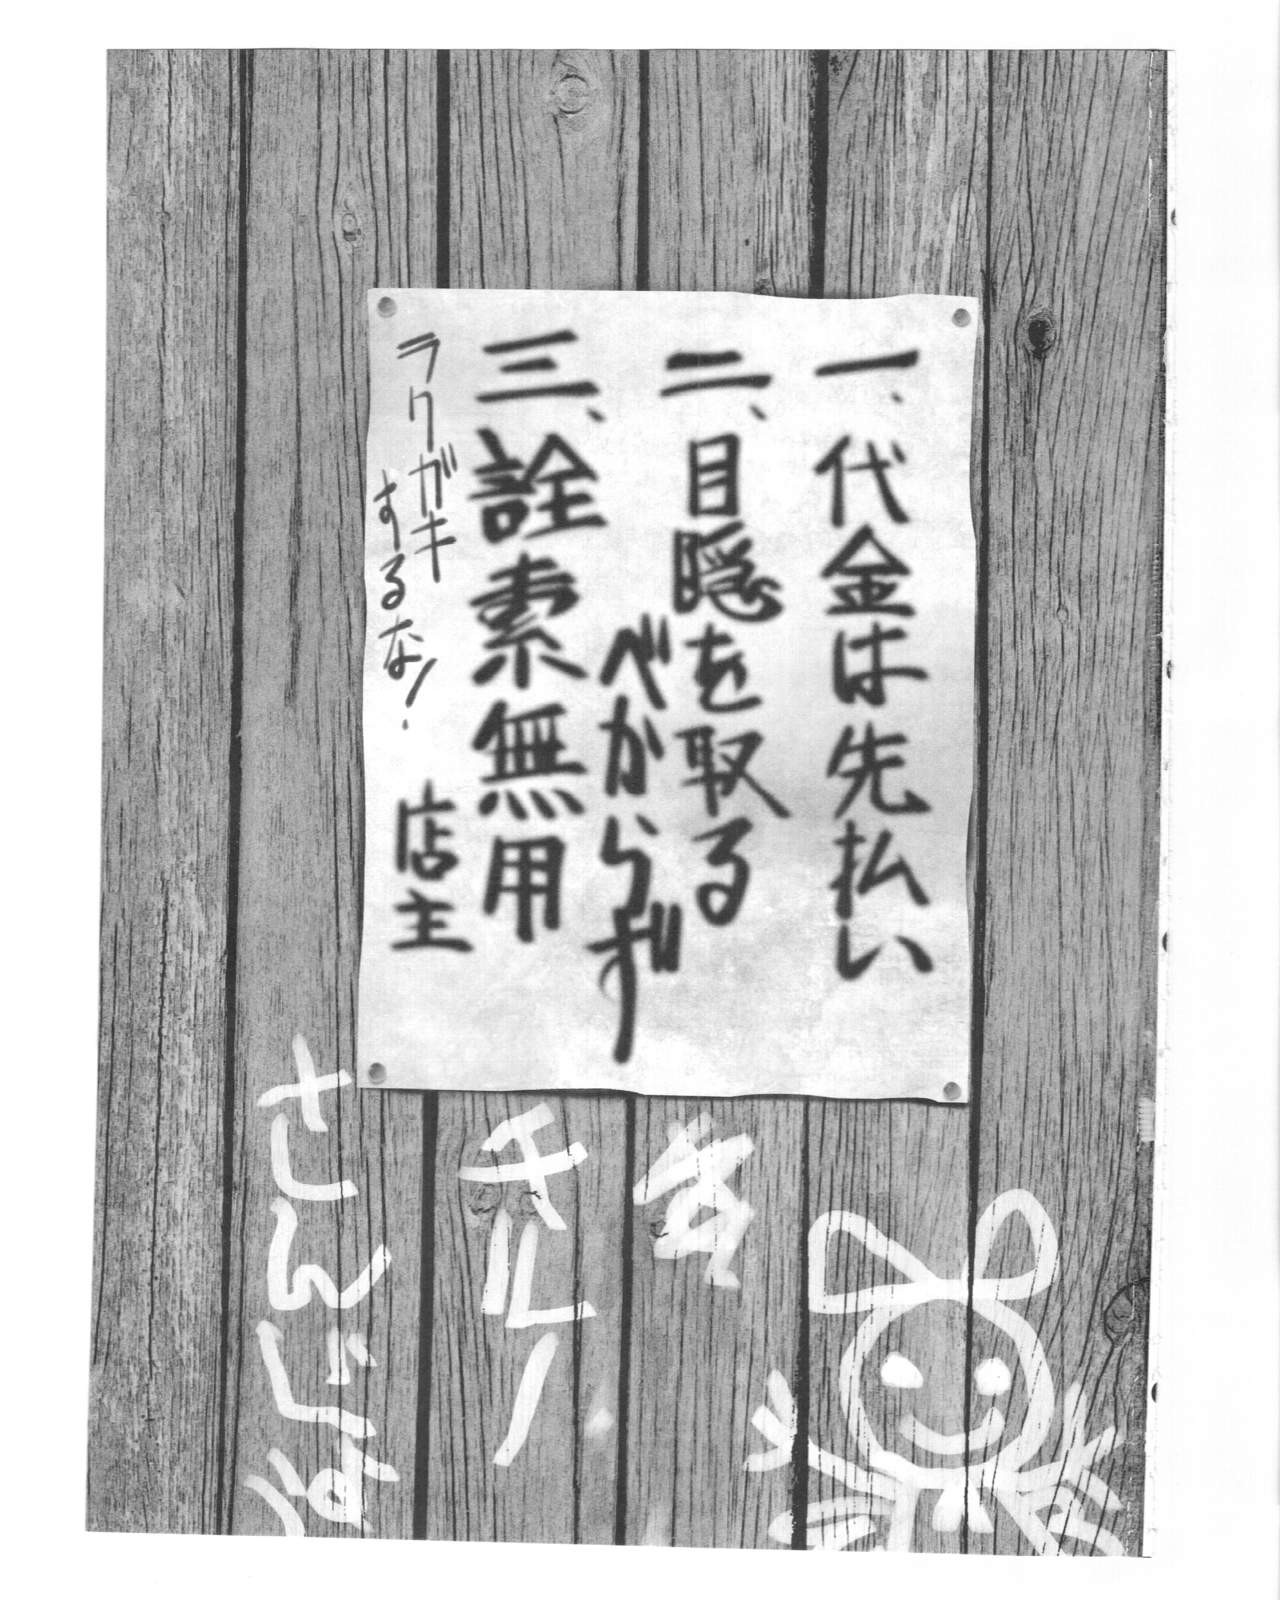 一、代金は先払い
二、目隠を取る
べからず
三、詮索無用
ラクガキ
するな!
店主
チルノ